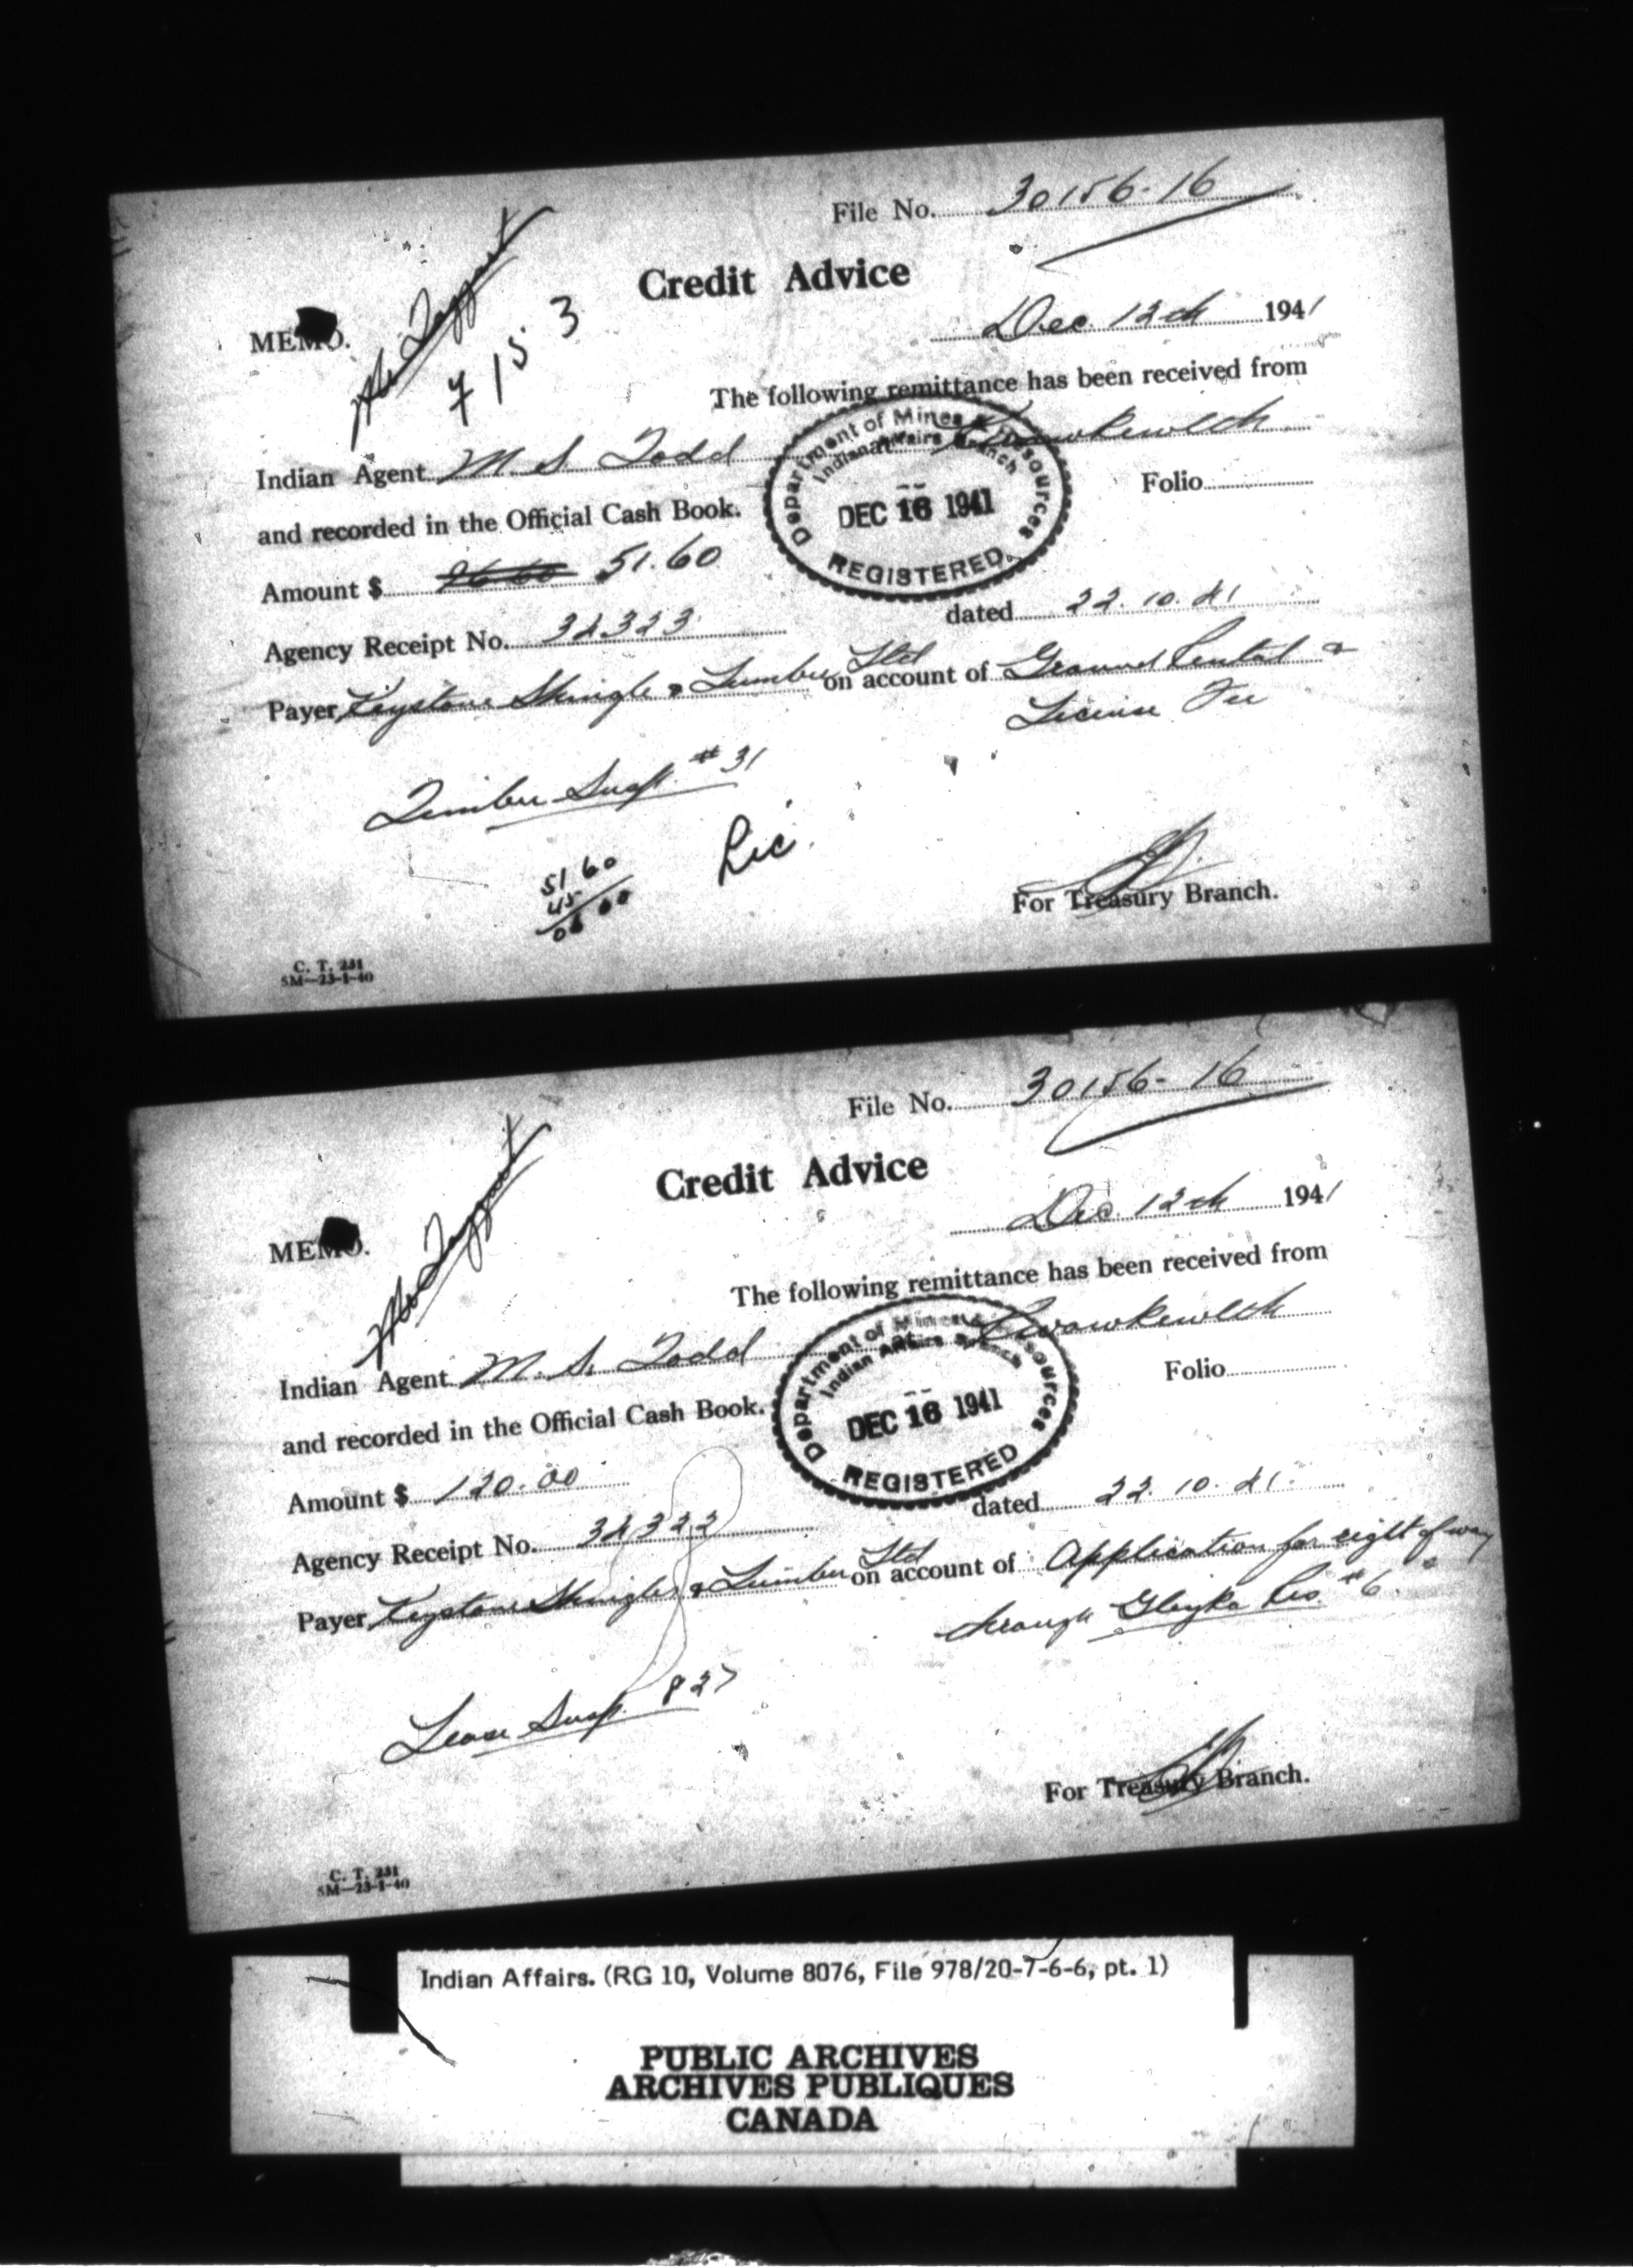 File No. 30156-16
Credit Advice
MEMO.
7153
Dec. 12th 1941
The following remittance has been received from
Indian Agent M. S. Todd Kwawkewlth
Department of Mines & Resources
Indian Affairs Branch
DEC 16 1941
REGISTERED
and recorded in the Official Cash Book. Folio
Amount $ 51.60
Agency Receipt No. 34323 dated 22.10.41
Payer Keystone Shingle & Lumber Ltd on account of Ground Rental &
License Fee
Timber Susp. #31
51 60
45
06 60
Lic.
For Treasury Branch.
C. T. 231
5M—23-1-40
File No. 30156-16
Credit Advice
MEMO.
Dec. 12th 1941
The following remittance has been received from
Indian Agent M. S. Todd Kwawkewlth
Department of Mines & Resources
Indian Affairs Branch
DEC 16 1941
REGISTERED
and recorded in the Official Cash Book. Folio
Amount $ 120.00
Agency Receipt No. 34322 dated 22.10.41
Payer Keystone Shingle & Lumber Ltd on account of Application for right of way
through Res. #6.
Lease Susp. 827
For Treasury Branch.
C. T. 231
5M—23-1-40
Indian Affairs. (RG 10, Volume 8076, File 978/20-7-6-6, pt. 1)
PUBLIC ARCHIVES
ARCHIVES PUBLIQUES
CANADA